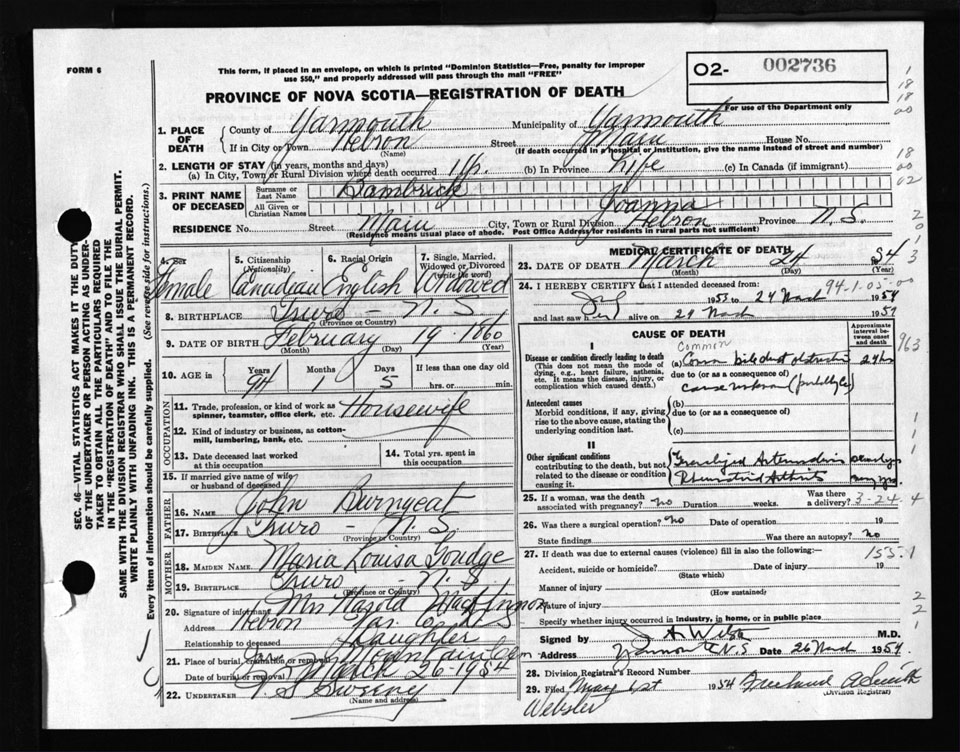 FORM 6
This form, if placed in an envelope, on which is printed "Dominion Statistics—Free, penalty for improper
use $50," and properly addressed will pass through the mail "FREE"
02- 002736
For use of the Department only
PROVINCE OF NOVA SCOTIA—REGISTRATION OF DEATH
1. PLACE OF DEATH
County of Yarmouth Municipality of Yarmouth
If in City or Town Hebron Street Main House No.
(Name) (If death occurred in a hospital or institution, give the name instead of street and number)
2. LENGTH OF STAY (in years, months and days)
(a) In City, Town or Rural Division where death occurred (b) In Province Life (c) In Canada (if immigrant)
3. PRINT NAME OF DECEASED
Surname or Last Name Bambrick
All Given or Christian Names Joanna
RESIDENCE No. Street Main City, Town or Rural Division Hebron Province N.S.
(Residence means usual place of abode. Post Office Address for residents in rural parts not sufficient)
4. Sex Female
5. Citizenship (Nationality) Canadian
6. Racial Origin English
7. Single, Married, Widowed or Divorced (write the word) Widowed
8. BIRTHPLACE Truro - N.S.
(Province or Country)
9. DATE OF BIRTH February 19 1860
(Month) (Day) (Year)
10. AGE in Years 94 Months 1 Days 5 If less than one day
hrs. or min.
OCCUPATION
11. Trade, profession, or kind of work as spinner, teamster, office clerk, etc. Housewife
12. Kind of industry or business, as cotton-mill, lumbering, bank, etc.
13. Date deceased last worked at this occupation
14. Total yrs. spent in this occupation
15. If married give name of wife or husband of deceased
FATHER
16. NAME John Burnyeat
17. BIRTHPLACE Truro - N.S.
(Province or Country)
MOTHER
18. MAIDEN NAME Maria Louisa Goudge
19. BIRTHPLACE Truro - N.S.
(Province or Country)
20. Signature of informant Mrs Harold MacKinnon
Address Hebron Yar. Co. N S
Relationship to deceased Daughter
21. Place of burial, cremation or removal Mountain Cem
Date of burial or removal March 26-1954
22. UNDERTAKER Sweeny
(Name and address)
MEDICAL CERTIFICATE OF DEATH
23. DATE OF DEATH March 24 54
(Month) (Day) (Year)
24. I HEREBY CERTIFY that I attended deceased from:
94-1-05-00
1953 to 24 March 1954
and last saw her alive on 24 March 1954
CAUSE OF DEATH
Approximate interval between onset and death
I
Disease or condition directly leading to death
(This does not mean the mode of dying, e.g., heart failure, asthenia, etc. It means the disease, injury, or complication which caused death.)
Common
(a) bile duct obstruction 24 hrs
due to (or as a consequence of)
cause unknown
Antecedent causes
Morbid conditions, if any, giving rise to the above cause, stating the underlying condition last.
(b)
due to (or as a consequence of)
(c)
II
Other significant conditions
contributing to the death, but not related to the disease or condition causing it.
Generalized Arteriosclerosis
Rheumatoid Arthritis
25. If a woman, was the death associated with pregnancy? no Duration weeks. Was there a delivery? 3-24-4
26. Was there a surgical operation? no Date of operation 19
State findings Was there an autopsy? no
27. If death was due to external causes (violence) fill in also the following:—
Accident, suicide or homicide? Date of injury 19
(State which)
Manner of injury
(How sustained)
Nature of injury
Specify whether injury occurred in industry, in home, or in public place
Signed by M.D.
Address Yarmouth N.S Date 26 March 1954
28. Division Registrar's Record Number
29. Filed May 1st 1954
(Division Registrar)
Webster
SEC. 46—VITAL STATISTICS ACT MAKES IT THE DUTY
OF THE UNDERTAKER OR PERSON ACTING AS UNDER-
TAKER TO OBTAIN ALL THE PARTICULARS REQUIRED
IN THE "REGISTRATION OF DEATH" AND TO FILE THE
SAME WITH THE DIVISION REGISTRAR WHO SHALL ISSUE THE BURIAL PERMIT.
WRITE PLAINLY WITH UNFADING INK. THIS IS A PERMANENT RECORD.
Every item of information should be carefully supplied. (See reverse side for instructions.)